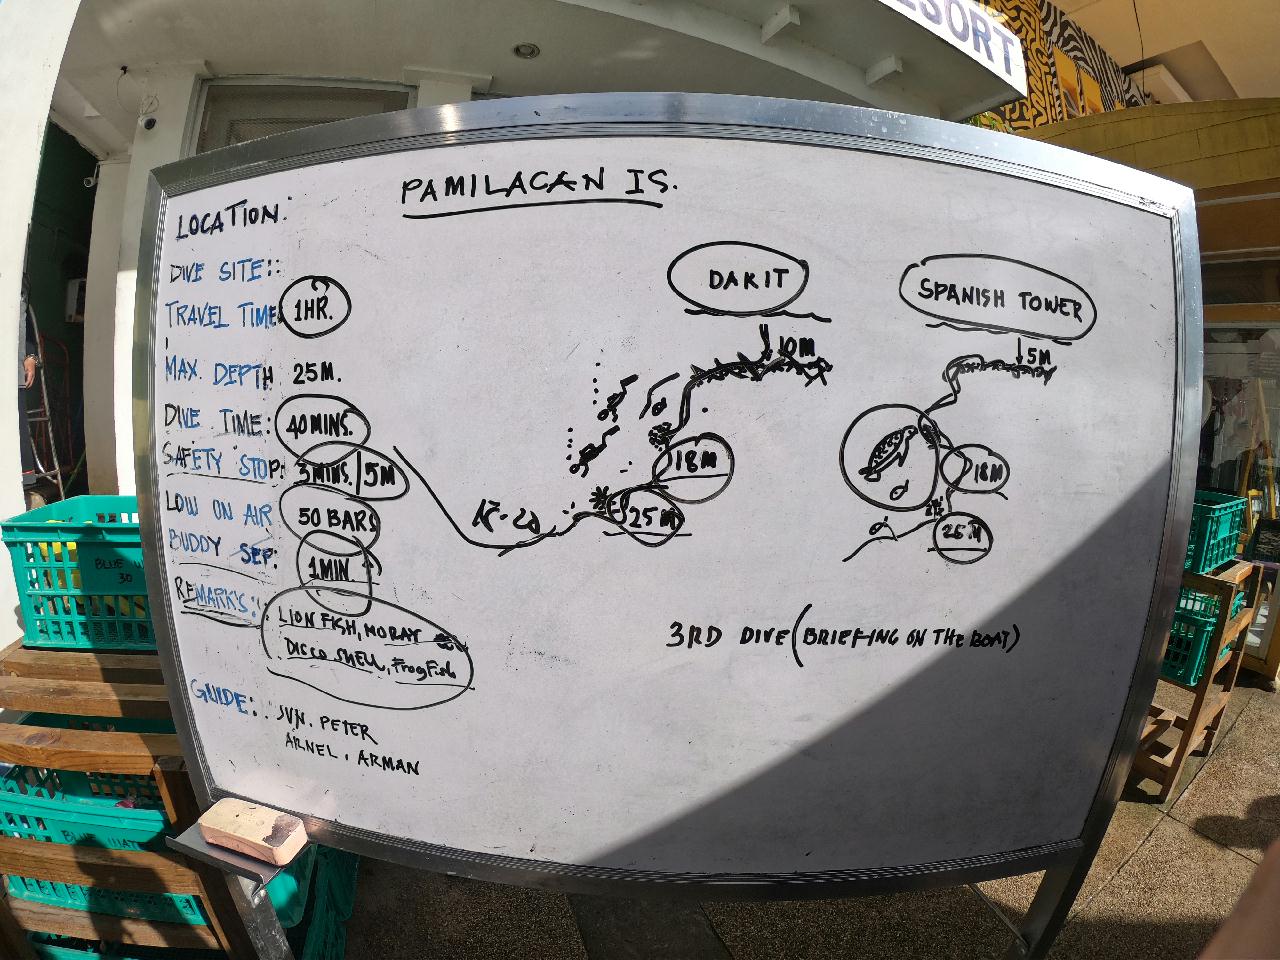 ESORT
PAMILACAN IS.
LOCATION:
DIVE SITE::
TRAVEL TIME: 1HR.
MAX. DEPTH 25M.
DIVE TIME: 40MINS.
SAFETY STOP: 3MINS./5M
LOW ON AIR 50 BARS
BUDDY SEP: 1MIN.
REMARK'S::
LION FISH, MORAY
DISCO SHELL, FrogFish
GUIDE:
JUN. PETER
ARNEL. ARMAN
DAKIT
10M
18M
25M
SPANISH TOWER
5M
18M
25M
3RD DIVE (BRIEFING ON THE BOAT)
BLUE
30
BLUE WAT